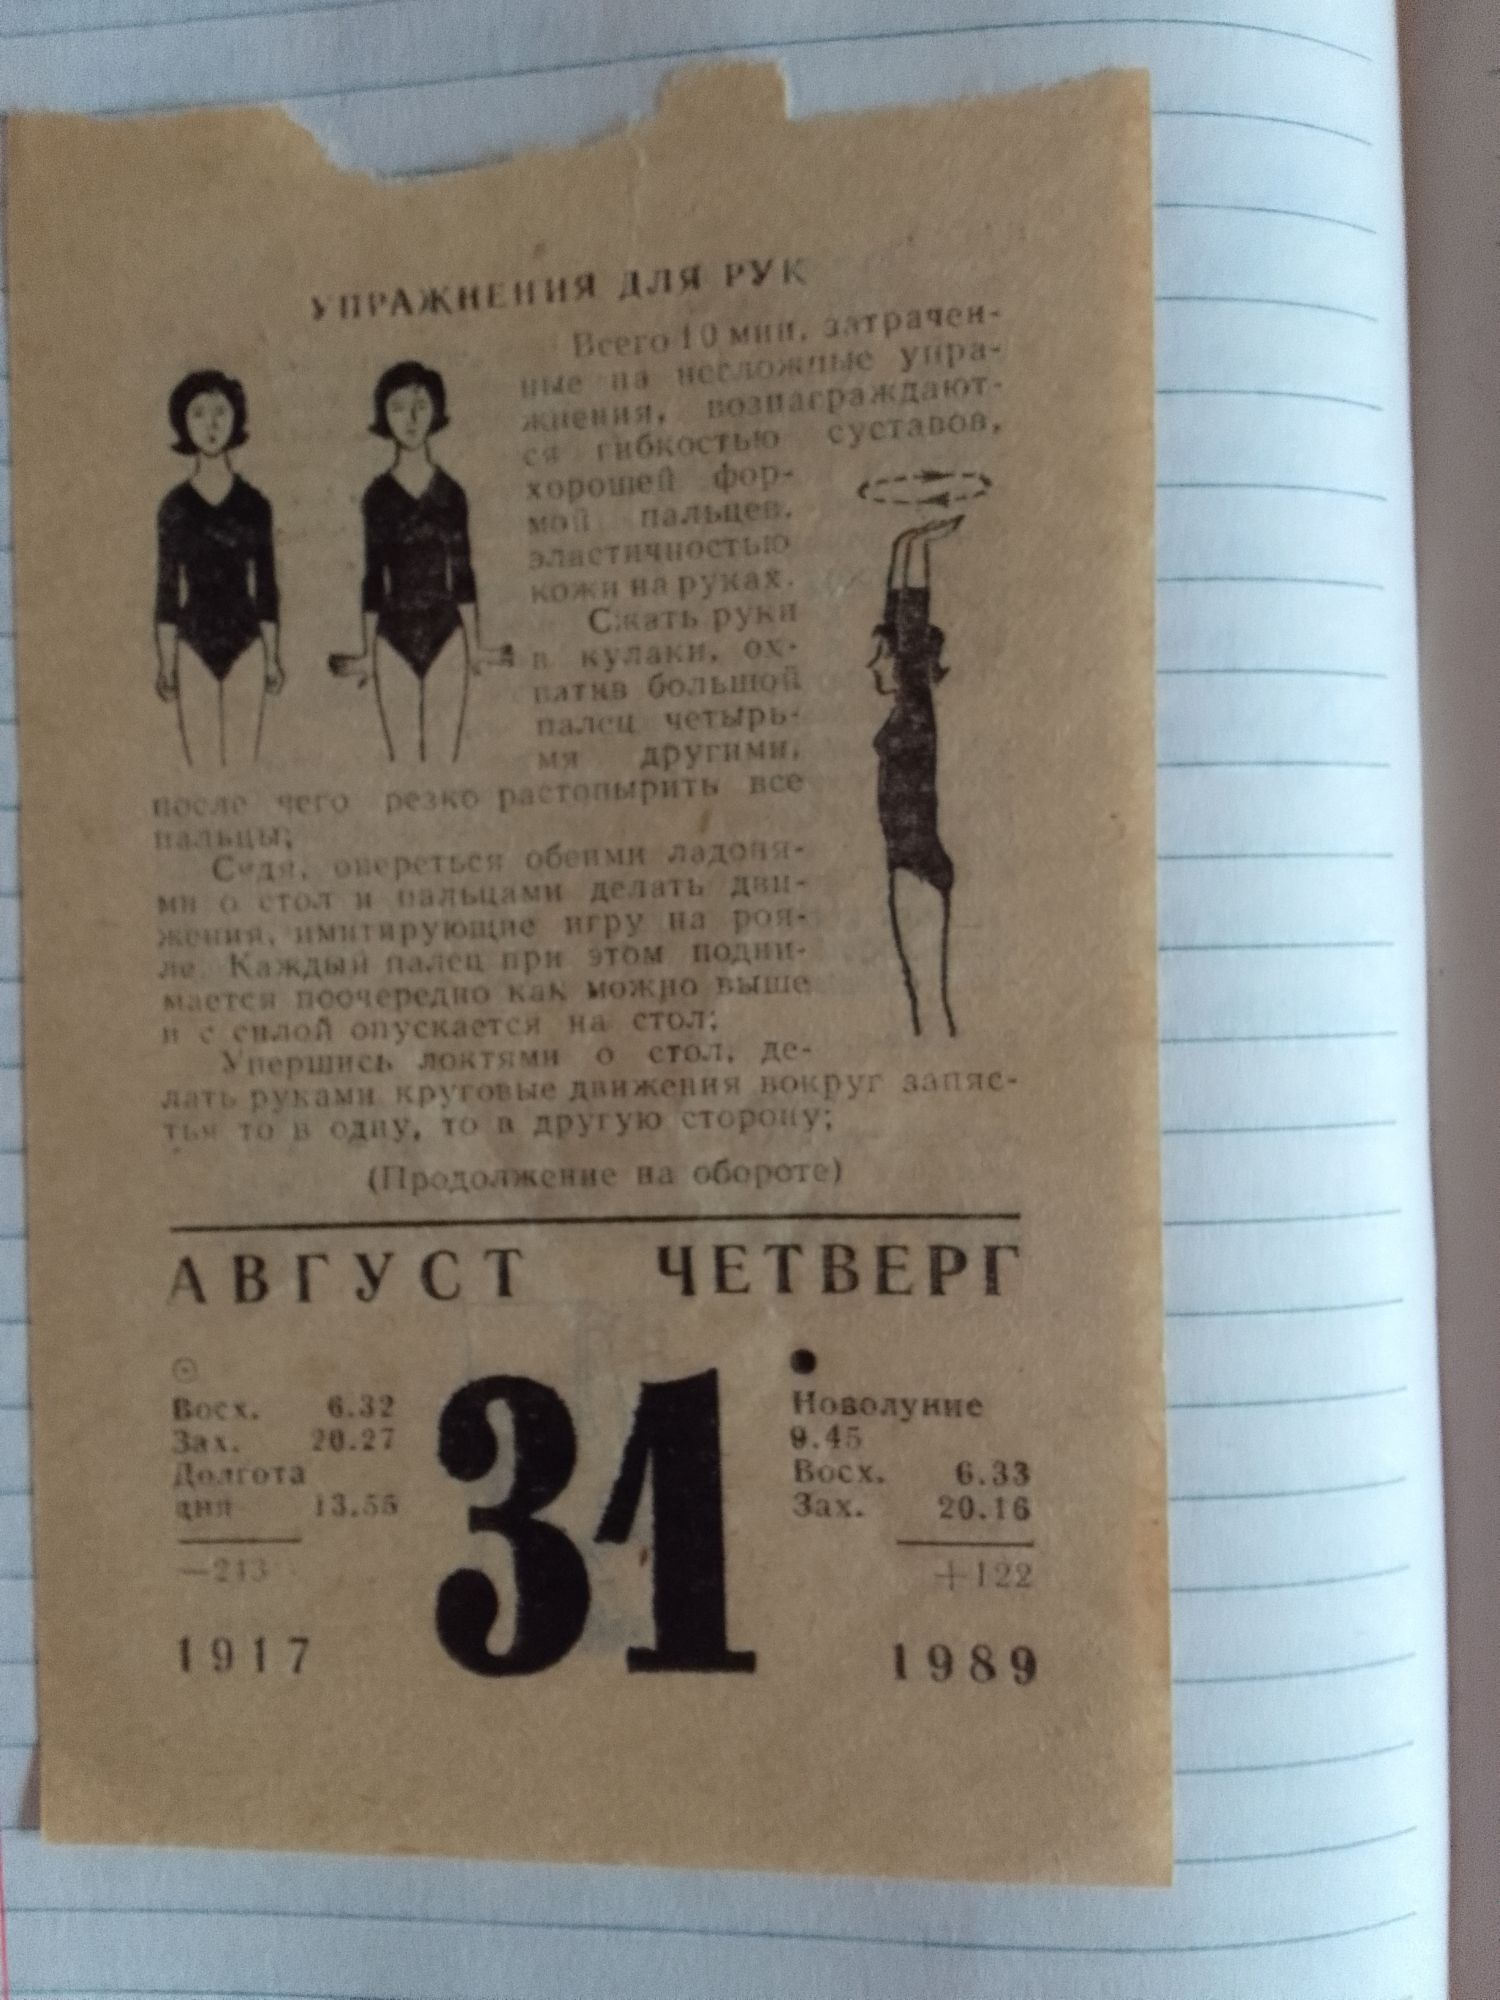 УПРАЖНЕНИЯ ДЛЯ РУК
Всего 10 мин, затрачен-
ные на несложные упра-
жнения, вознаграждают-
ся гибкостью суставов,
хорошей фор-
мой пальцев,
эластичностью
кожи на руках.
Сжать руки
в кулаки, ох-
ватив большой
палец четырь-
мя другими,
после чего резко растопырить все
пальцы;
Сидя, опереться обеими ладоня-
ми о стол и пальцами делать дви-
жения, имитирующие игру на роя-
ле. Каждый палец при этом подни-
мается поочередно как можно выше
и с силой опускается на стол;
Упершись локтями о стол, де-
лать руками круговые движения вокруг запяс-
тья то в одну, то в другую сторону;
(Продолжение на обороте)
АВГУСТ ЧЕТВЕРГ
Восх. 6.32
Зах. 20.27
Долгота
дня 13.55
—213
1917
31
Новолуние
9.45
Восх. 6.33
Зах. 20.16
+122
1989